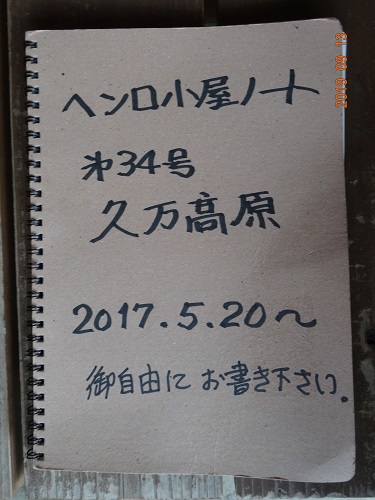 ヘンロ小屋ノート
㐧34号
久万高原
2017.5.20〜
御自由にお書き下さい。